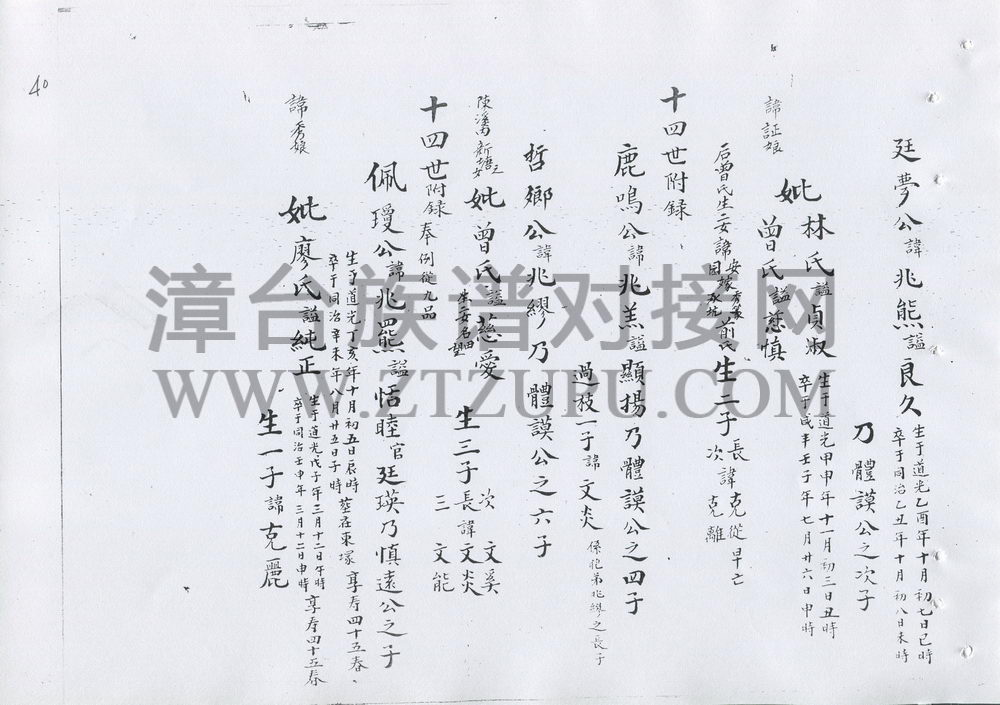 廷夢公諱兆熊謚良久
生于道光乙酉年十月初七日巳時
卒于同治乙丑年十月初八日未時
乃體謨公之次子
妣林氏謚貞淑
生于道光甲申年十一月初三日丑時
卒于咸丰壬子年七月廿六日申時
曾氏謚慈慎
諱証娘
后曾氏生二女諱
生二子
長諱克從早亡
次克離
十四世附録
鹿鳴公諱兆羔謚顯揚乃體謨公之四子
過枝一子諱文炎
係胞弟兆繆之長子
哲鄉公諱兆繆乃體謨公之六子
妣曾氏謚慈愛
生三子
次文奚
長諱文炎
三文能
十四世附録奉例從九品
佩瓊公諱兆羆謚恬睦官廷瑛乃慎遠公之子
生于道光丁亥年十月初五日辰時
卒于同治辛未年八月廿五日子時
葬在東塚
享寿四十五春
妣廖氏謚純正
諱秀娘
生于道光戊子年三月十二日午時
卒于同治壬申年三月十二日申時
享寿四十五春
生一子諱克麗
40
漳台族谱对接网
WWW.ZTZUPU.COM